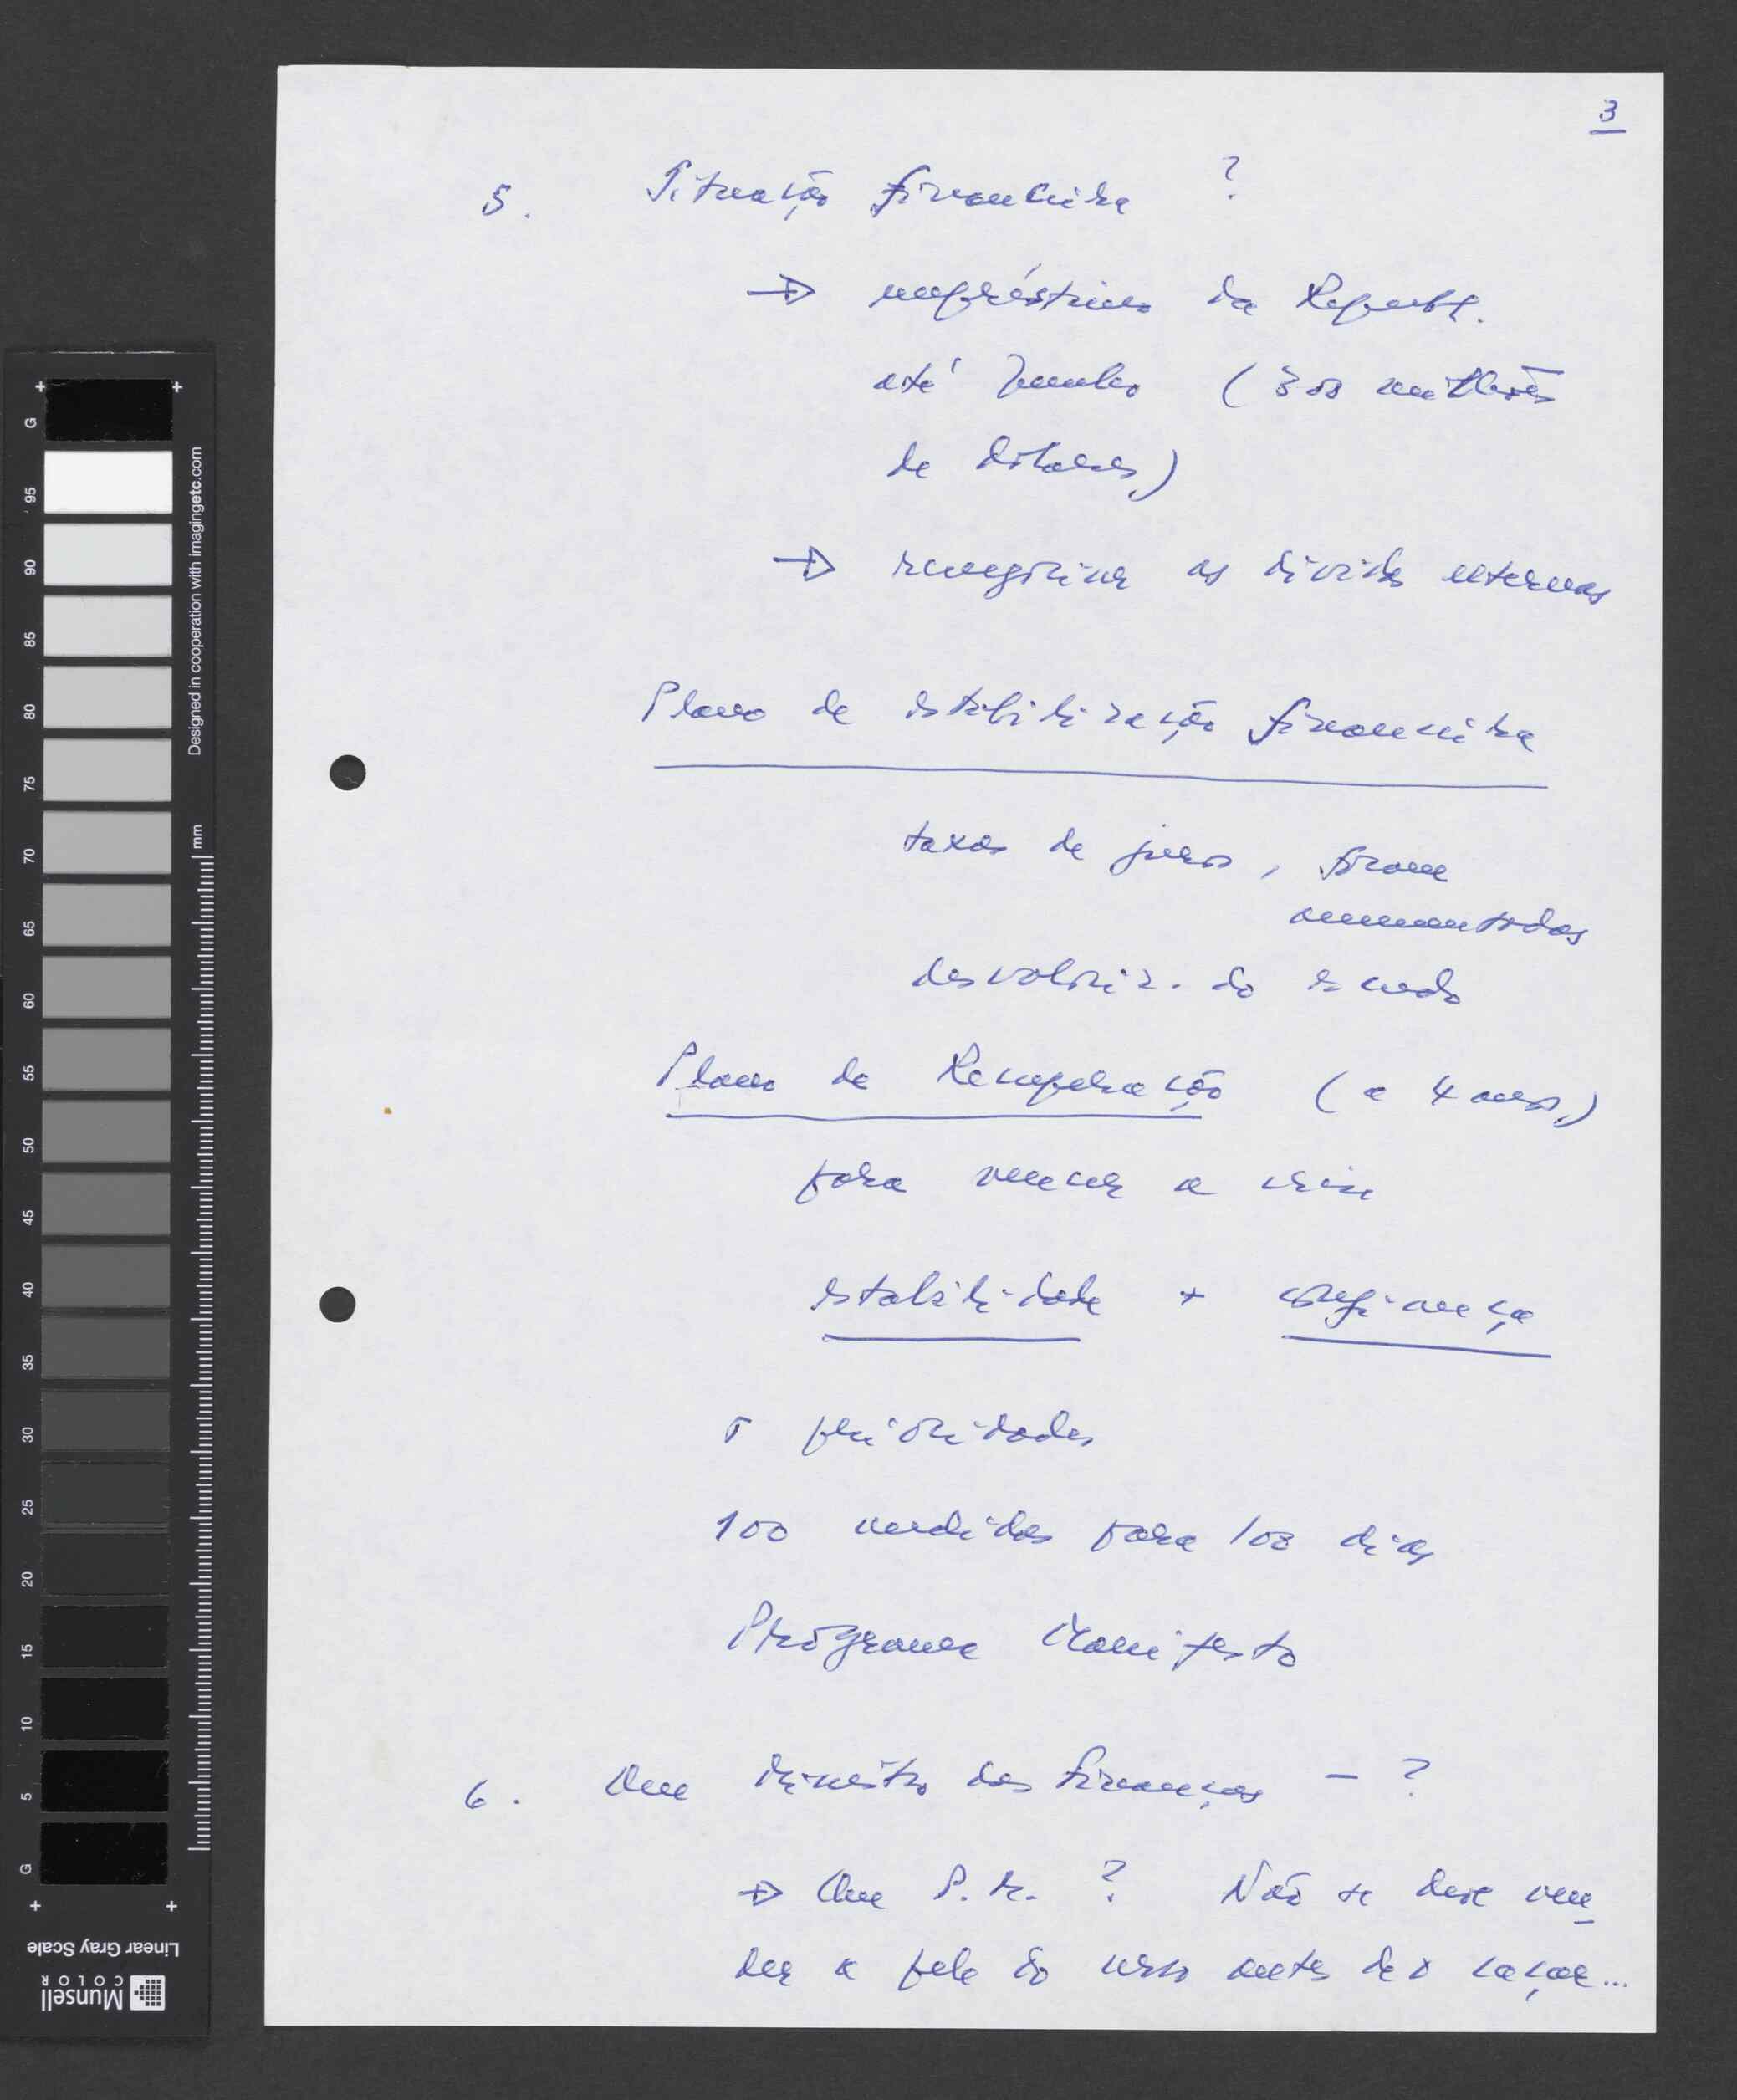 3
5. Situação financeira ?
→ empréstimo da Republ.
até Junho (300 milhões
de dólares)
→ renegociar as dívidas externas
Plano de estabilização financeira
taxas de juros, foram
aumentadas
desvaloriz. do escudo
Plano de Recuperação (a 4 anos)
para vencer a crise
estabilidade + confiança
5 prioridades
100 medidas para 100 dias
Programa Manifesto
6. Um Ministro das Finanças — ?
→ Um P.M. ? Não se deve ven
der a pele do urso antes de o caçar...
G
95
90
85
80
75
70
65
60
55
50
45
40
35
30
25
20
15
10
5
G
Designed in cooperation with imagingetc.com
mm
Linear Gray Scale
Munsell
COLOR